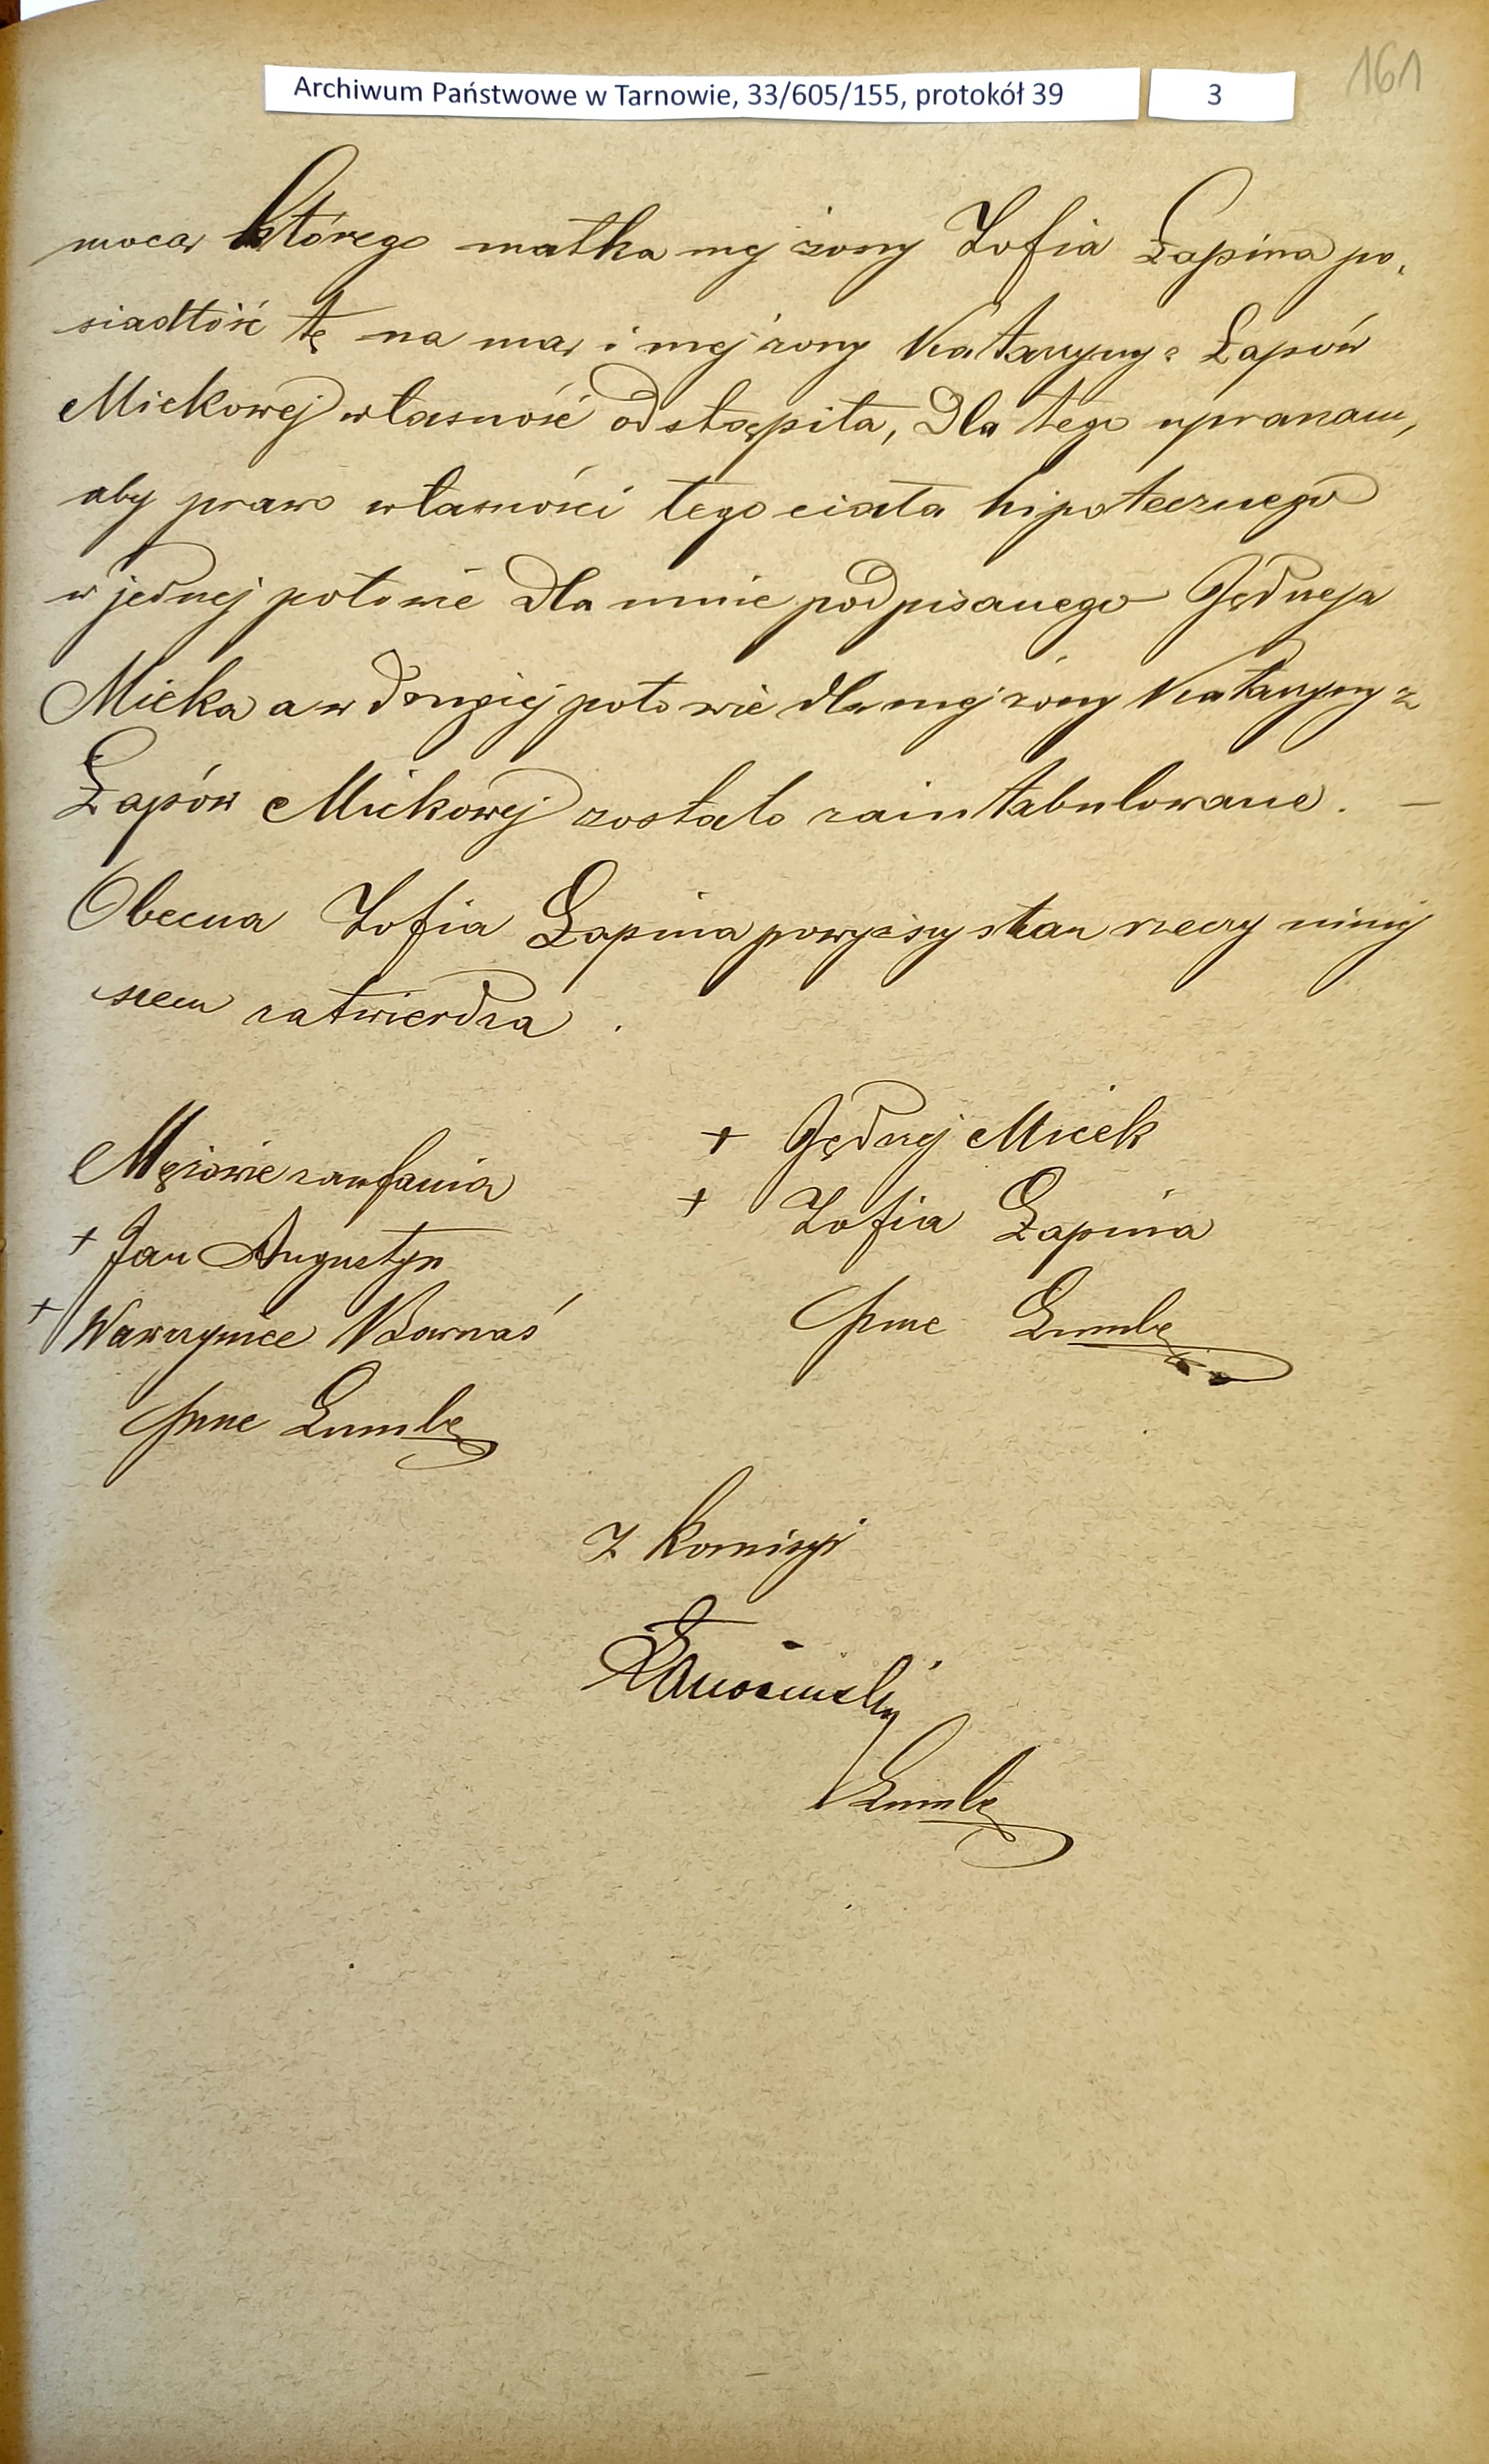 Archiwum Państwowe w Tarnowie, 33/605/155, protokół 39 3 161
mocą którego matka mej żony Zofia Łapina po,
siadłość tę na mą i mej żony Katarzyny z Łapów
Mickowej własność odstąpiła, Dla tego upraszam,
aby prawo własności tego ciała hipotecznego
w jednej połowie dla mnie podpisanego Jędrzeja
Micka a w drugiej połowie dla mej żony Katarzyny z
Łapów Mickowej zostało zaintabulowane. —
Obecna Zofia Łapina powyższy stan rzeczy niniej
szem zatwierdza.
+ Jędrzej Micek
Mężowie zaufania
+ Zofia Łapina
+ Jan Augustyn
+ Wawrzyniec Barnaś
Z Komisyi